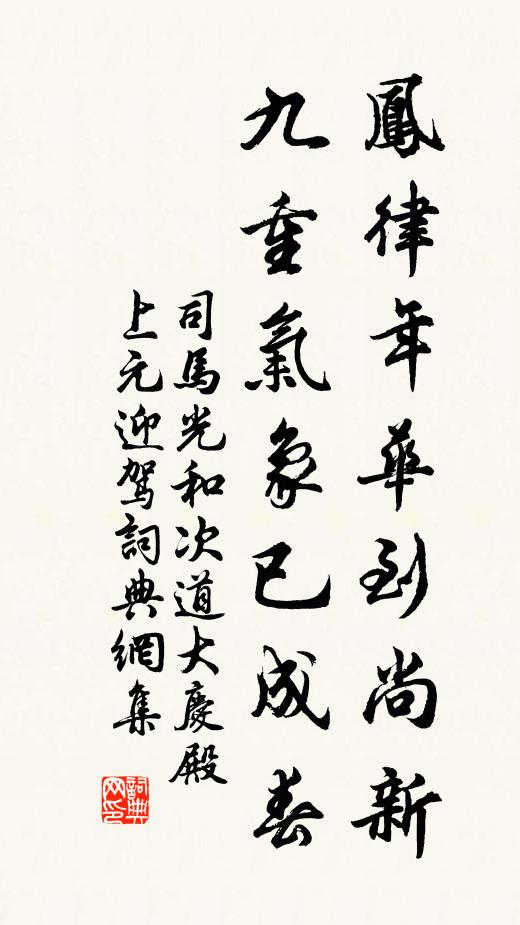 鳳律年華到尚新
九重氣象已成春
司馬光和次道大慶殿
上元迎駕詞典網集
詞典
网印